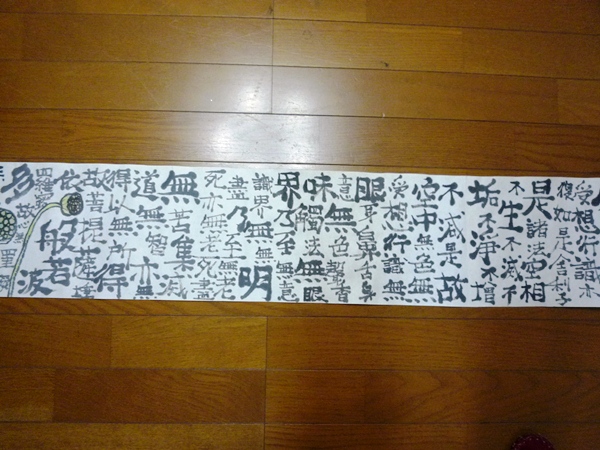 受想行識亦
復如是舍利子
是諸法空相
不生不滅不
垢不淨不增
不減是故
空中無色無
受想行識無
眼耳鼻舌身
意無色聲香
味觸法無眼
界乃至無意
識界無無明
盡乃至無老
死亦無老死盡
無苦集滅
道無智亦無
得以無所得
故菩提薩埵
依般若波
羅蜜
多故